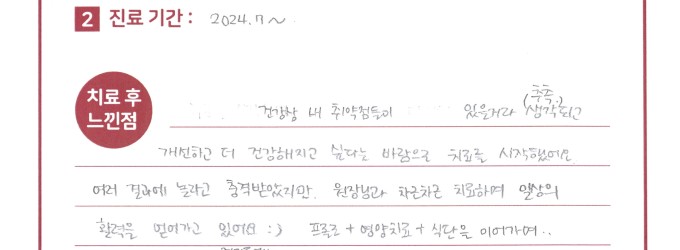 2 진료 기간 : 2024.7~
치료 후
느낀점
건강상 내 취약점들이 있을거라 (추측) 생각되고
개선하고 더 건강해지고 싶다는 바람으로 치료를 시작했어요
여러 결과에 놀라고 충격받았지만, 원장님과 차근차근 치료하며 일상의
활력을 얻어가고 있어요 :) 프롤로 + 영양치료 + 식단을 이어가며..